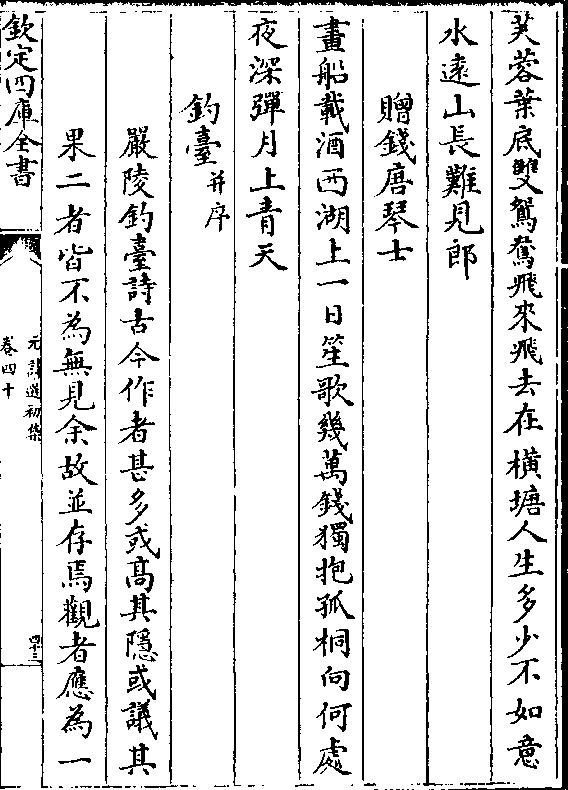 芙蓉葉底雙鴛鴦飛來飛去在橫塘人生多少不如意
水遠山長難見郎
贈錢唐琴士
畫船載酒西湖上一日笙歌幾萬錢獨抱孤桐向何處
夜深彈月上青天
釣臺并序
嚴陵釣臺詩古今作者甚多或高其隱或議其
果二者皆不為無見余故並存焉觀者應為一
欽定四庫全書
元詩選初集
卷四十
四十三